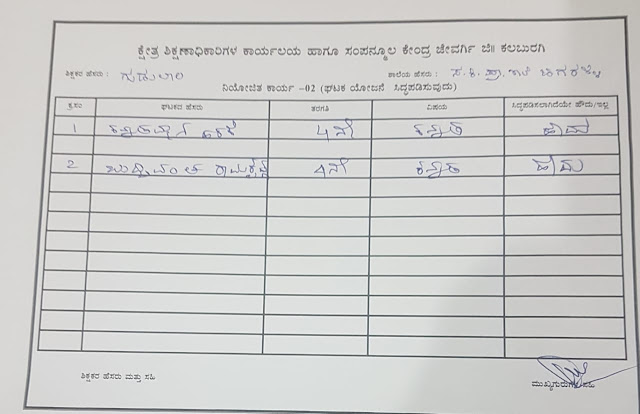 ಕ್ಷೇತ್ರ ಶಿಕ್ಷಣಾಧಿಕಾರಿಗಳ ಕಾರ್ಯಲಯ ಹಾಗೂ ಸಂಪನ್ಮೂಲ ಕೇಂದ್ರ ಜೇವರ್ಗಿ ಜಿ॥ ಕಲಬುರಗಿ
ಶಿಕ್ಷಕರ ಹೆಸರು : ಶಾಲೆಯ ಹೆಸರು : ಸ.ಕಿ.ಪ್ರಾ.ಶಾಲೆ
ನಿಯೋಜಿತ ಕಾರ್ಯ –02 (ಘಟಕ ಯೋಜನೆ ಸಿದ್ಧಪಡಿಸುವುದು)
ಕ್ರ.ಸಂ ಘಟಕದ ಹೆಸರು ತರಗತಿ ವಿಷಯ ಸಿದ್ಧಪಡಿಸಲಾಗಿದೆಯೇ ಹೌದು/ಇಲ್ಲ
1 ಕನ್ನಡಮ್ಮನ ಹರಕೆ 4ನೇ ಕನ್ನಡ ಹೌದು
2 ಬುದ್ಧಿವಂತ ರಾಮಕೃಷ್ಣ 4ನೇ ಕನ್ನಡ ಹೌದು
ಶಿಕ್ಷಕರ ಹೆಸರು ಮತ್ತು ಸಹಿ ಮುಖ್ಯಗುರುಗಳ ಸಹಿ